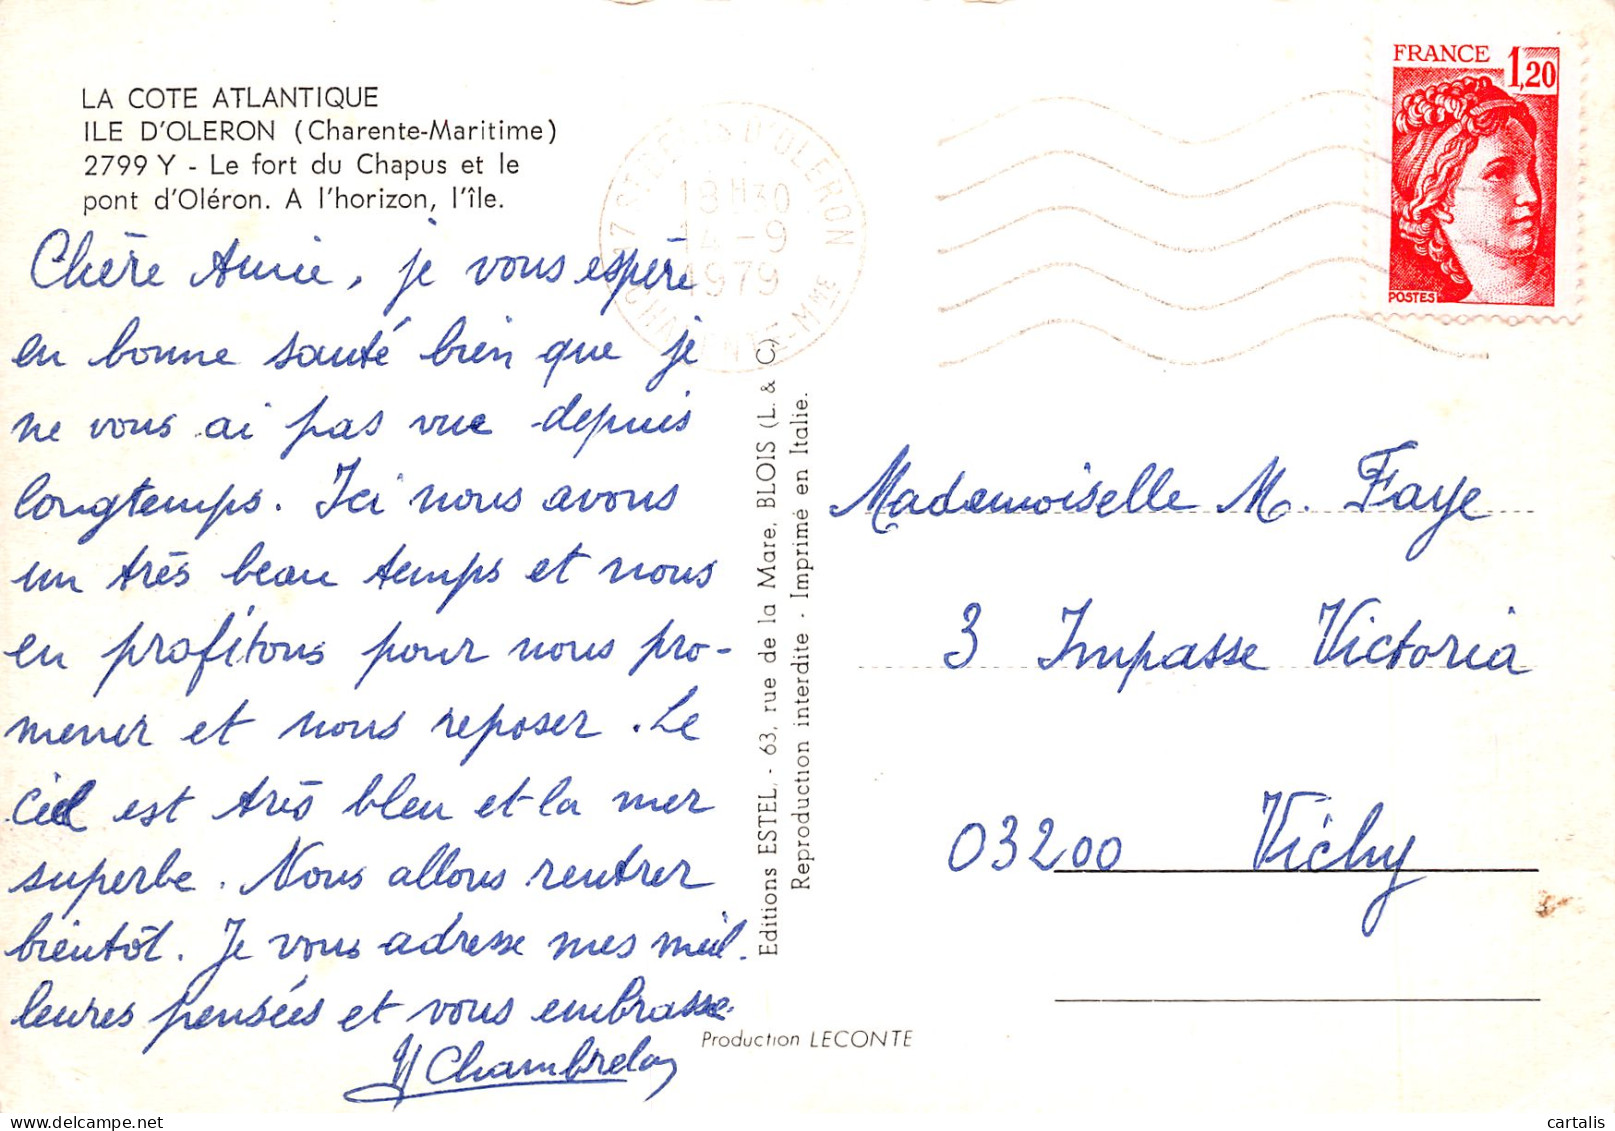 LA COTE ATLANTIQUE
ILE D'OLERON (Charente-Maritime)
2799 Y - Le fort du Chapus et le
pont d'Oléron. A l'horizon, l'île.
Chère Amie, je vous espère
en bonne santé bien que je
ne vous ai pas vue depuis
longtemps. Ici nous avons
un très beau temps et nous
en profitons pour nous pro-
mener et nous reposer. Le
ciel est très bleu et la mer
superbe. Nous allons rentrer
bientôt. Je vous adresse mes meil-
leures pensées et vous embrasse.
Chambrelon
Editions ESTEL, - 63, rue de la Mare, BLOIS (L. & C)
Reproduction interdite - Imprimé en Italie.
Production LECONTE
D'OLERON
18H30
14-9
1979
17
CHARENTE-MME
FRANCE 1,20
POSTES
Mademoiselle M. Faye
3 Impasse Victoria
03200 Vichy
cartalis